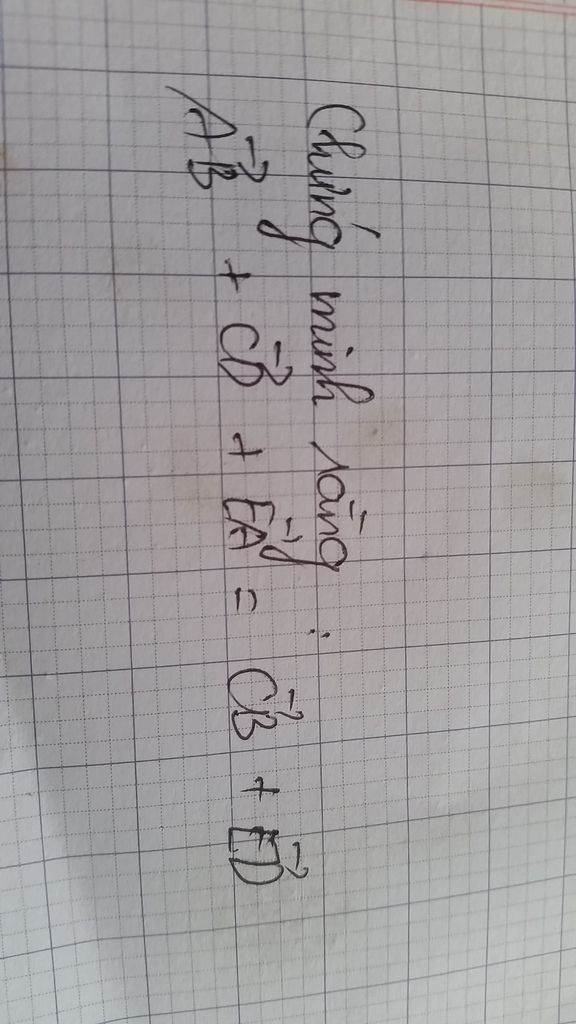 Chứng minh rằng :
AB→ + CB→ + EA→ = CB→ + ED→